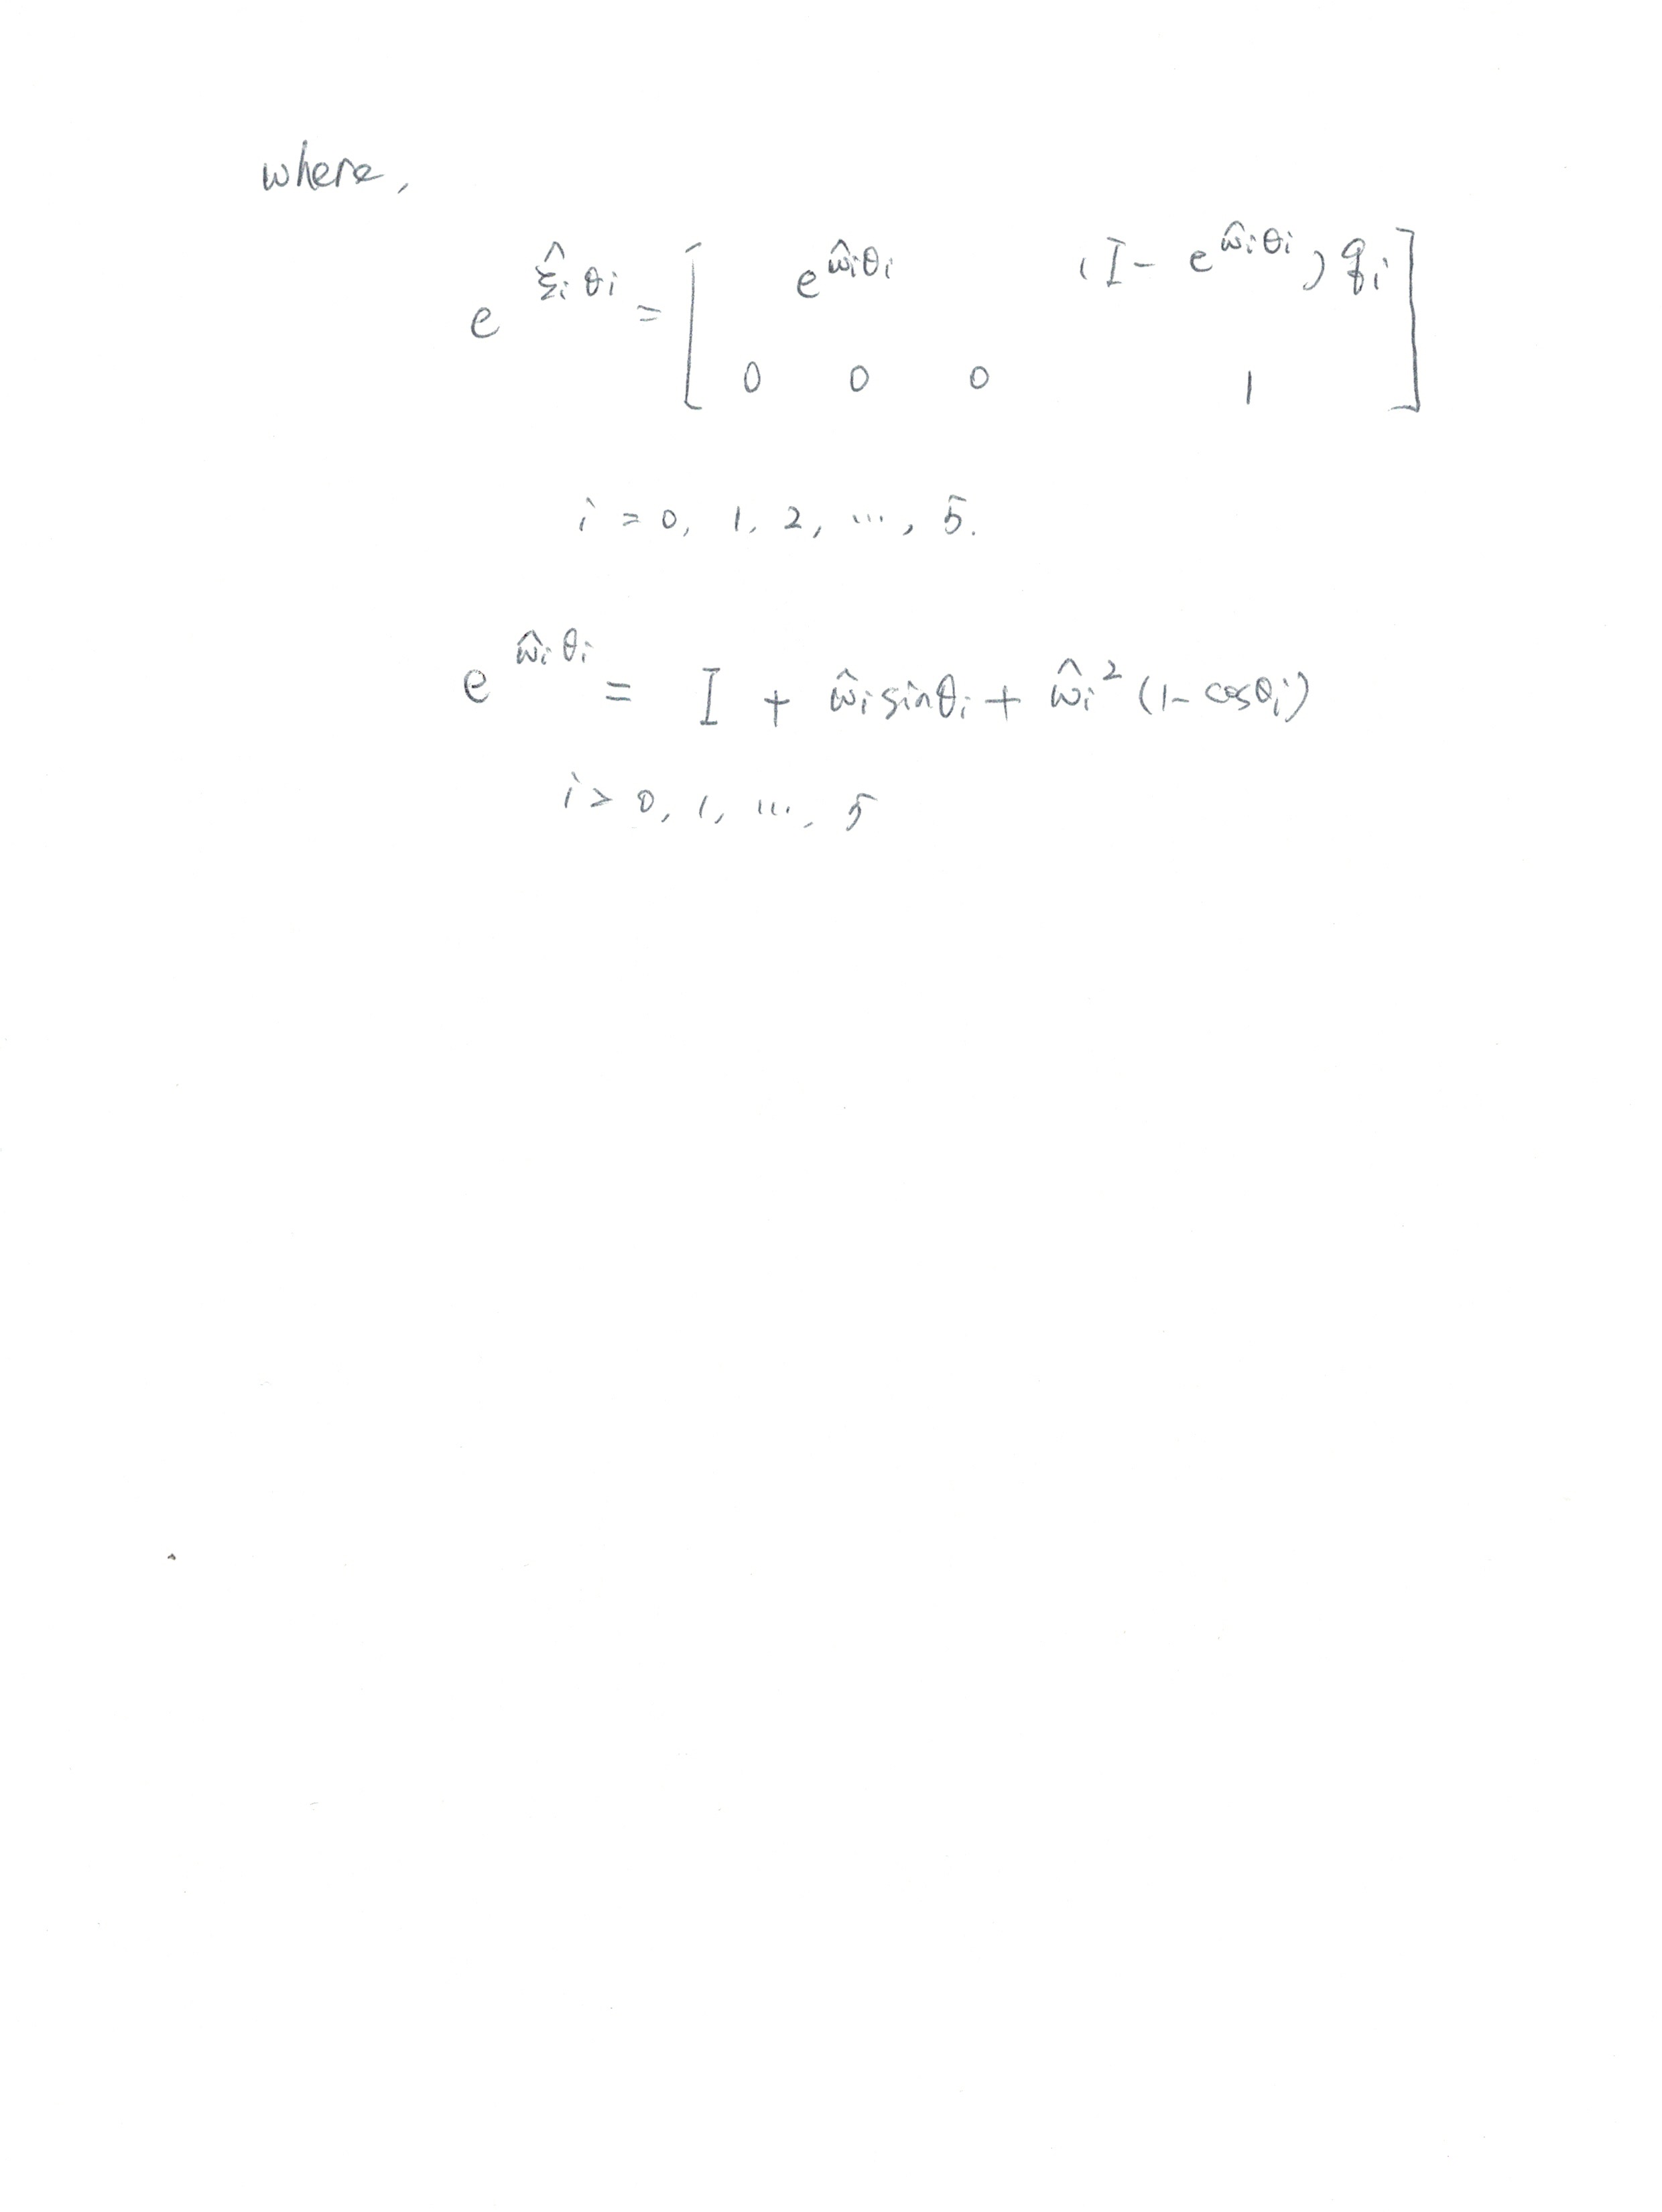 where,
e^{\hat{ξ}_i θ_i} = [ e^{\hat{ω}_i θ_i} (I - e^{\hat{ω}_i θ_i}) q_i
0 0 0 1 ]
i = 0, 1, 2, ..., 5.
e^{\hat{ω}_i θ_i} = I + \hat{ω}_i sinθ_i + \hat{ω}_i^2 (1 - cosθ_i)
i > 0, 1, ..., 5